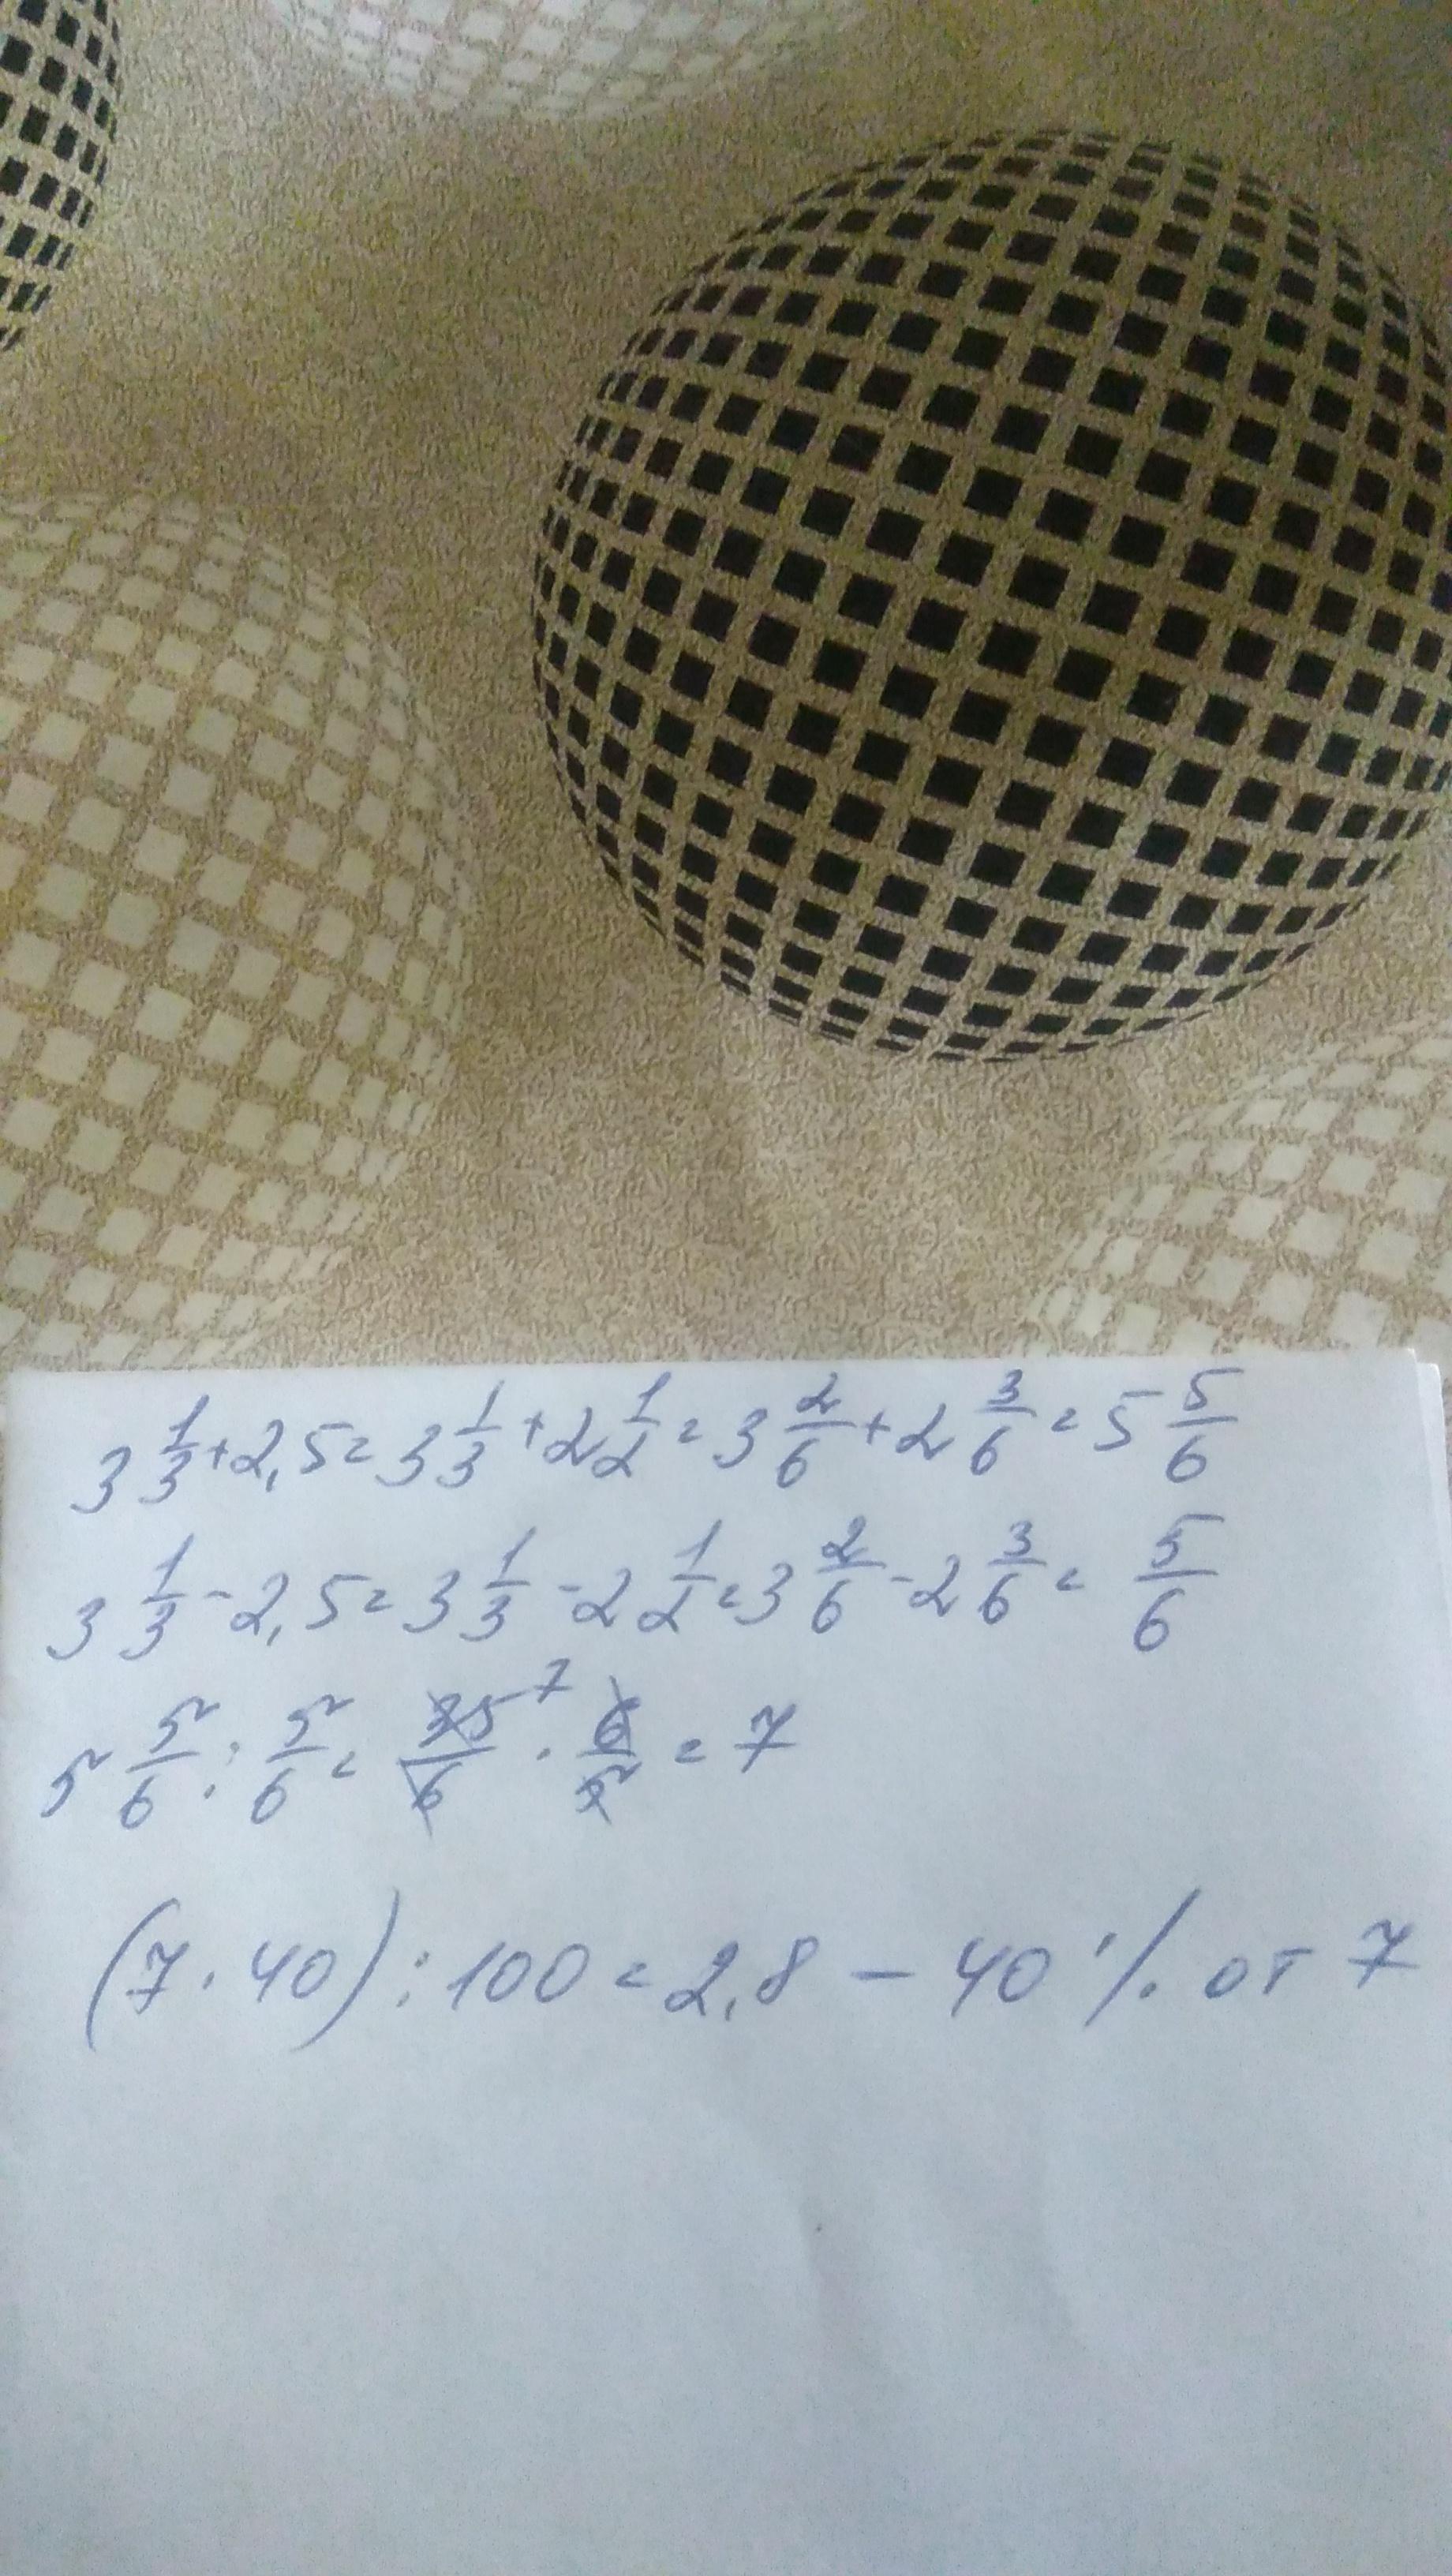 3 1/3 + 2,5 = 3 1/3 + 2 1/2 = 3 2/6 + 2 3/6 = 5 5/6
3 1/3 - 2,5 = 3 1/3 - 2 1/2 = 3 2/6 - 2 3/6 = 5/6
5 5/6 : 5/6 = 35/6 7 · 6/5 = 7
(7 · 40) : 100 = 2,8 - 40 % от 7